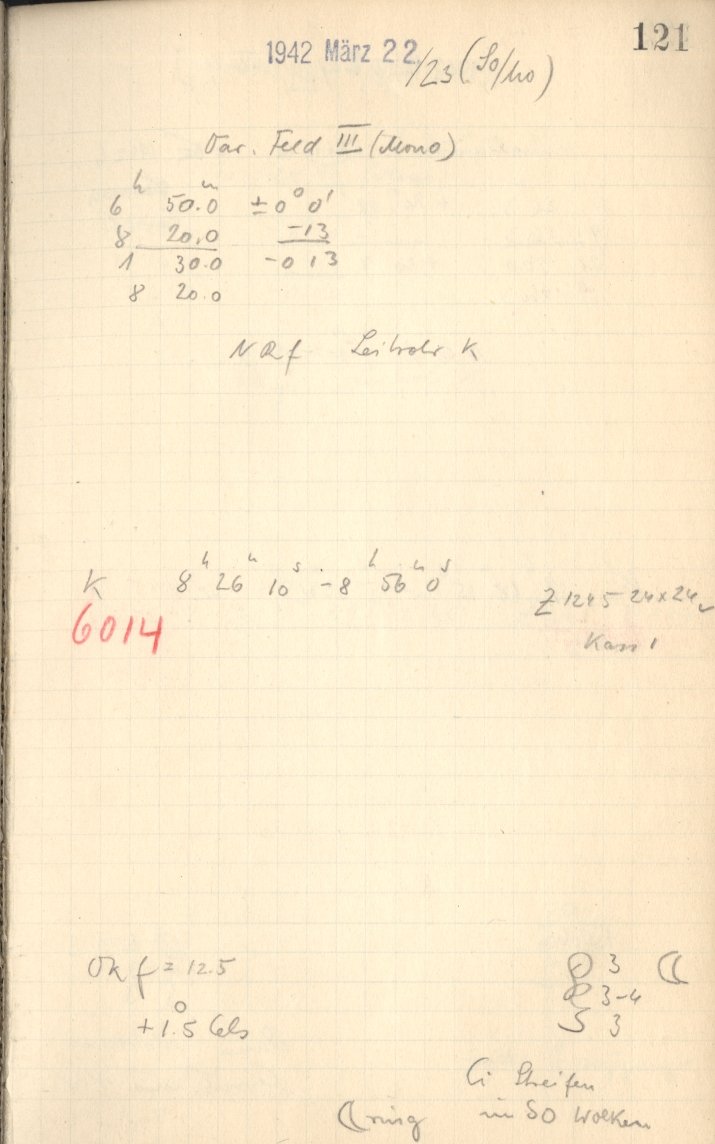 121
1942 März 22/23 (So/Mo)
Var. Feld III (Mono)
6h 50.0m ±0° 0'
8 20.0 -13
1 30.0 -0 13
8 20.0
NRf Leitrohr K
K 8h 26m 10s - 8h 56m 0s
6014
Z 1245 24x24
Kass 1
Ok f = 12.5
3
3-4
+1.5° Cels
S 3
Ci Streifen
ring
im SO Wolken